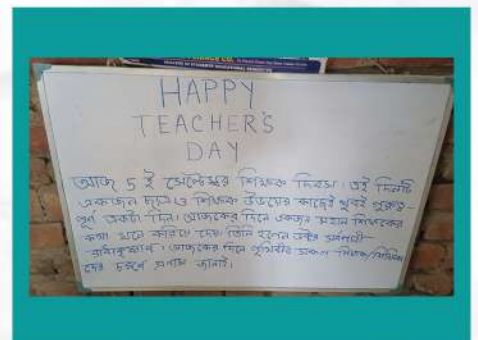 HAPPY
TEACHER'S
DAY
আজ 5 ই সেপ্টেম্বর শিক্ষক দিবস। এই দিনটি
একজন ছাত্র ও শিক্ষক উভয়ের কাছেই খুবই গুরুত্ব-
পূর্ণ একটা দিন। আজকের দিনে একজন মহান শিক্ষকের
কথা মনে করিয়ে দেয়। তিনি হলেন ডক্টর সর্বপল্লী
রাধাকৃষ্ণান। আজকের দিনে পৃথিবীর সকল শিক্ষক/শিক্ষিকা
দের চরণে প্রণাম জানাই।